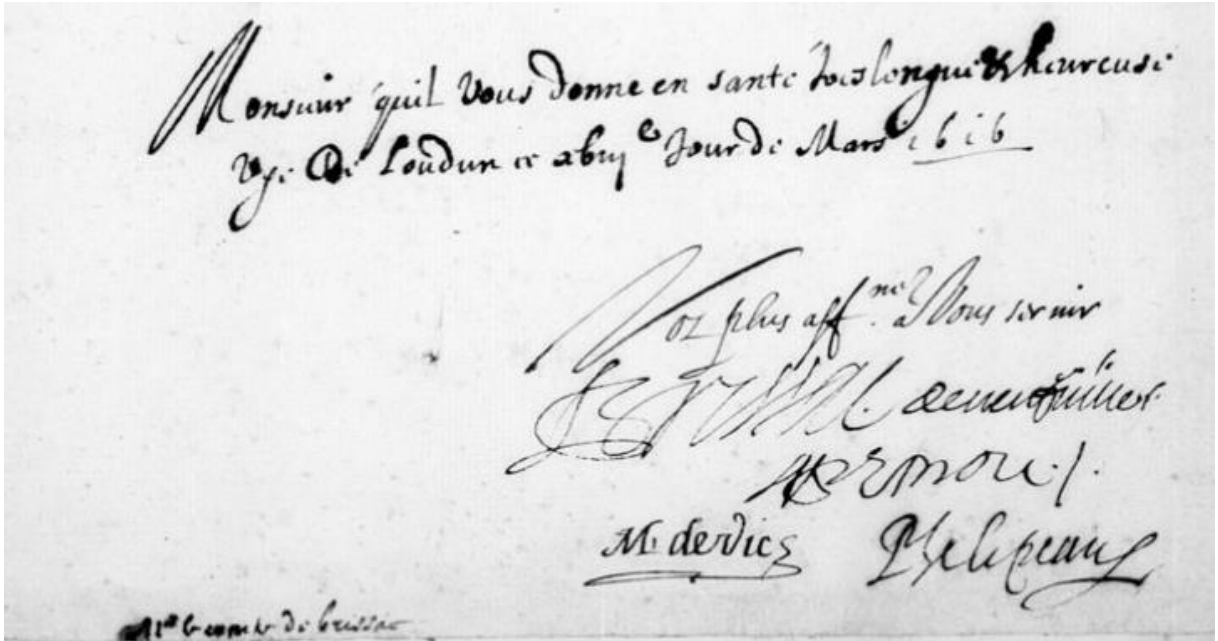 Monsieur quil Vous donne en santé treslongue & heureuse
Vye De Loudun ce xbııȷ e Jour de Mars 1616
Voz plus aff.nez a Vous servir
Brissac. deneufuille.
M. de Vic Phelipeaux
Mr le comte de brissac